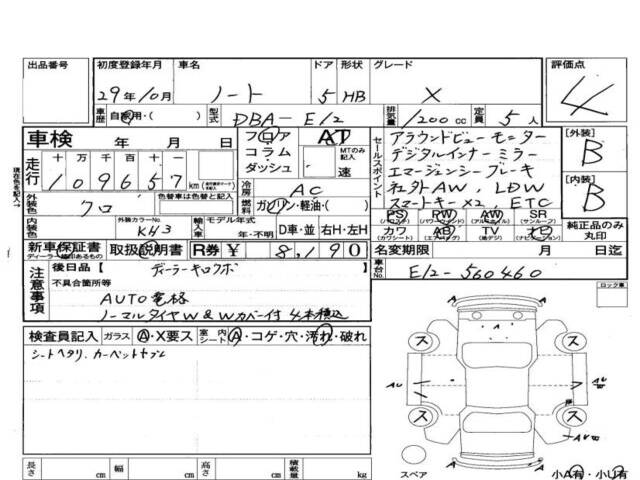 出品番号 初度登録年月 車名 ドア 形状 グレード 評価点
29年10月 ノート 5 HB X 4
車歴 自家用・( ) 型式 DBA-E12 排気量 1200cc 定員 5人
車検 年 月 日 フロア コラム ダッシュ AT MTのみ記入 速
走行 十 万 千 百 十 一
109657 km
冷房 AC
外装色 クロ 色替車は色替と記入
燃料 ガソリン・軽油・( )
セールスポイント
アラウンドビューモニター
デジタルインナーミラー
エマージェンシーブレーキ
社外AW, LDW
スマートキーx2, ETC
[外装] B
[内装] B
内装色 外装カラーNo. KH3 輸入車 モデル年式 年・不明 D車・並 右H・左H
PS PW AW SR
(パワステ) (パワーウインド) (アルミホイル) (サンルーフ)
カワ AB TV ナビ
(カワシート) (エアバック) (地デジ) (ナビゲーション)
純正品のみ丸印
新車保証書 取扱説明書 R券 ¥ 8,190 名変期限 月 日迄
注意事項 後日品【 ディーラーキロクボ 】
車台No. E12-560460
不具合箇所等
AUTO電格
ノーマルタイヤW&Wカバー付 4本積込
ロック車
検査員記入 ガラス A・X要ス 室内シート A・コゲ・穴・汚れ・破れ
シートヘタリ、カーペットヤブレ
ス ス
ス ス
A
AU
AW
AW
スペア
長さ cm 幅 cm 高さ cm 積載量 kg
小A有・小U有